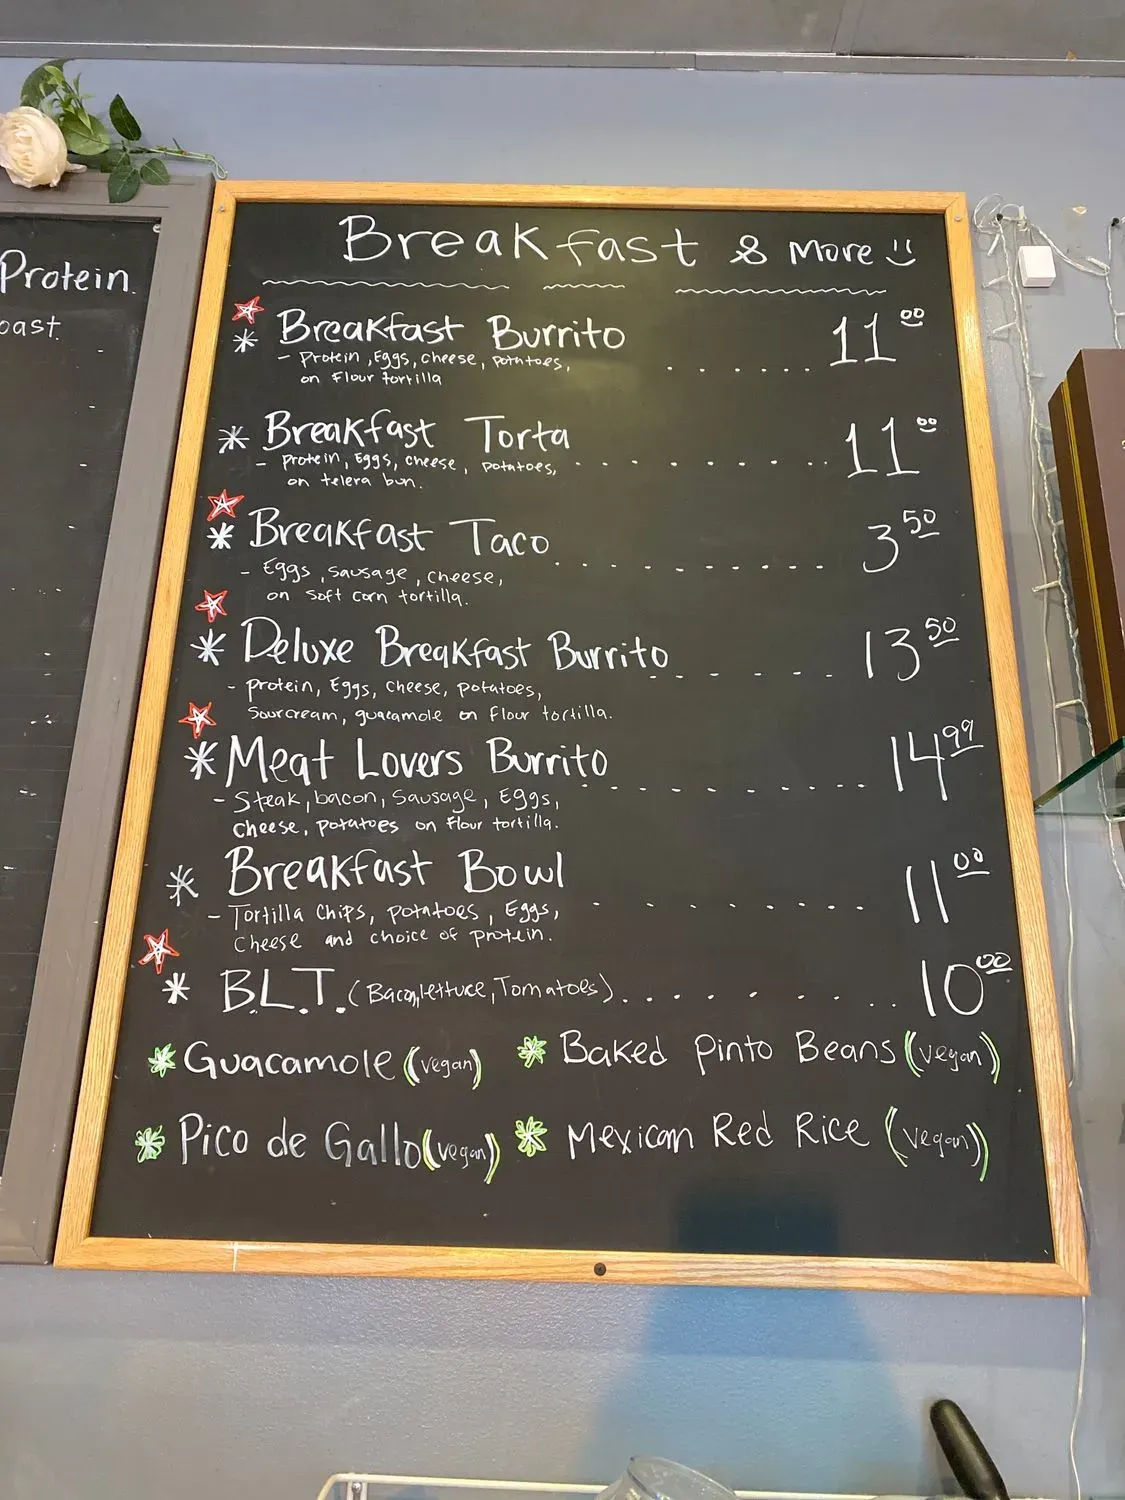 Protein
oast
Breakfast & More
* Breakfast Burrito ...... 11 00
- Protein, Eggs, cheese, potatoes,
on Flour tortilla
* Breakfast Torta ........ 11 00
- protein, Eggs, cheese, potatoes,
on telera bun.
* Breakfast Taco ......... 3 50
- Eggs, sausage, cheese,
on soft corn tortilla.
* Deluxe Breakfast Burrito ...... 13 50
- protein, Eggs, cheese, potatoes,
sour cream, guacamole on flour tortilla.
* Meat Lovers Burrito .......... 14 99
- Steak, bacon, sausage, Eggs,
cheese, potatoes on flour tortilla.
* Breakfast Bowl ....... 11 00
- Tortilla Chips, potatoes, Eggs,
Cheese and choice of protein.
* B.L.T. (Bacon, lettuce, Tomatoes) ........ 10 00
* Guacamole (vegan) * Baked Pinto Beans (vegan)
* Pico de Gallo (vegan) * Mexican Red Rice (vegan)